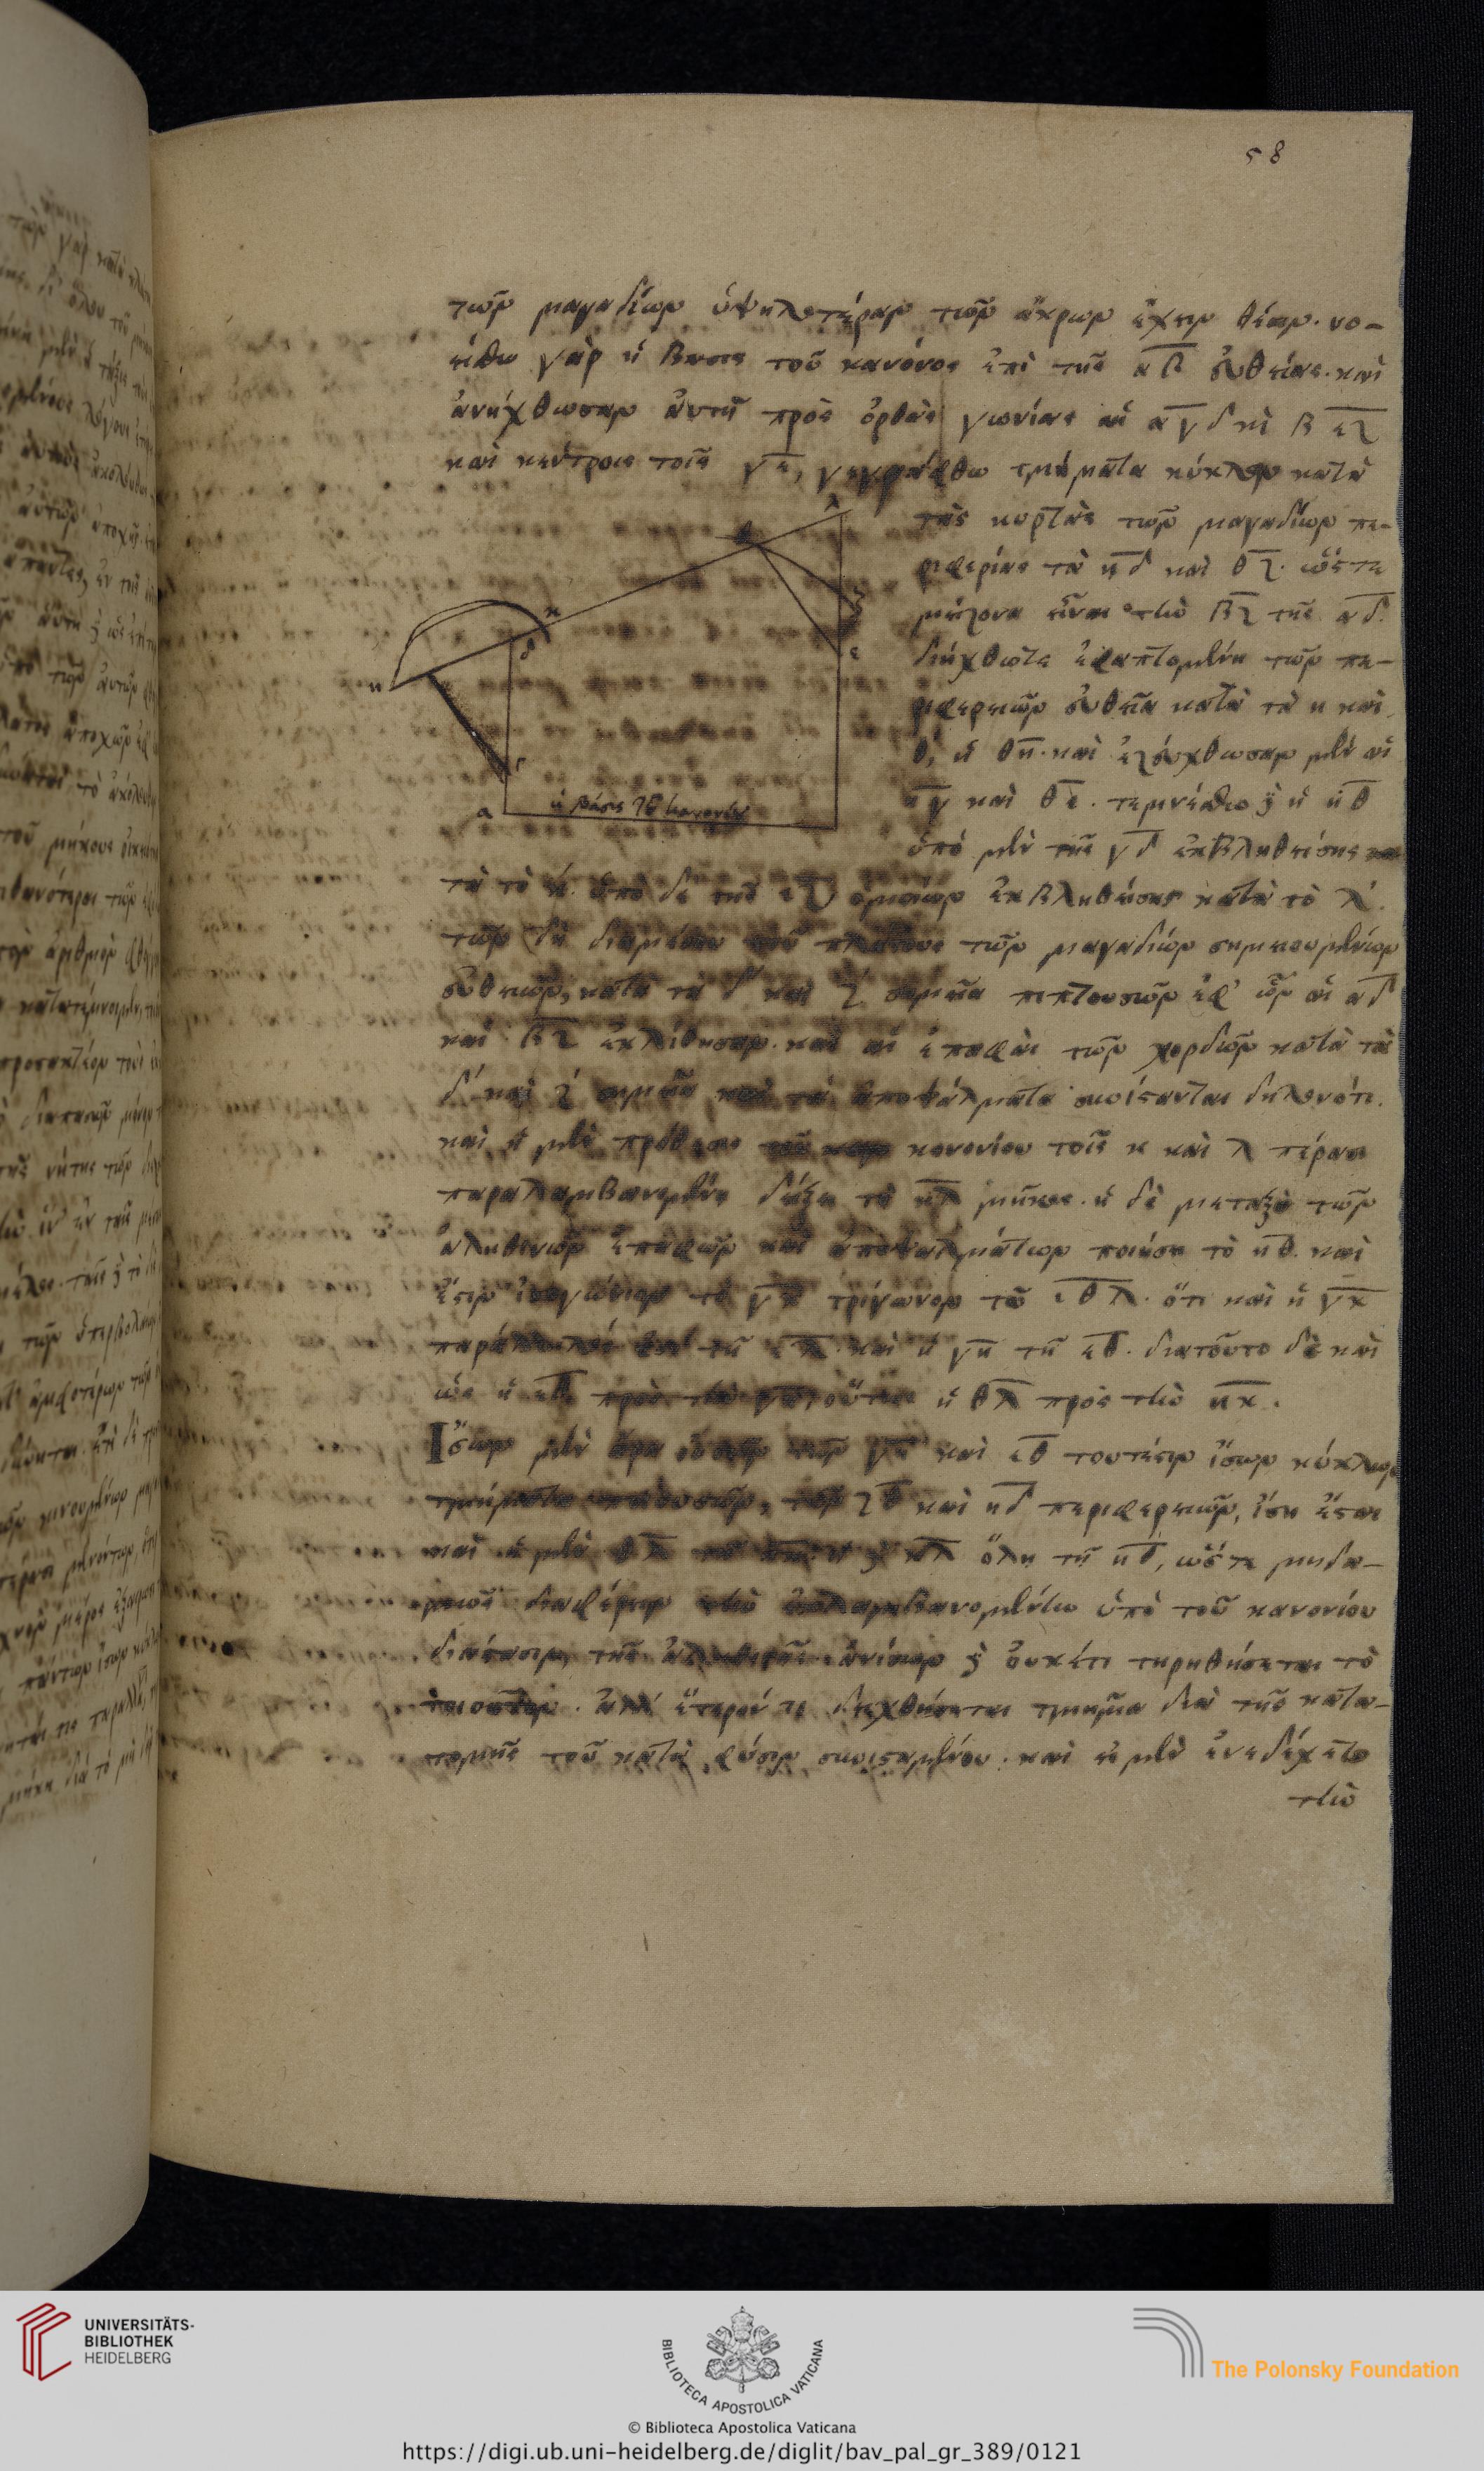 58
τῶν μαγαδίων ὑψηλοτέραν τῶν ἄκρων ἔχειν θέσιν. νο-
είσθω γὰρ ἡ βάσις τοῦ κανόνος ἐπὶ τῆς αβ εὐθείας. καὶ
ἀνήχθωσαν αὐτῇ πρὸς ὀρθὰς γωνίας αἱ αγδ καὶ βεζ
καὶ κέντροις τοῖς γε, γεγράφθω τμήματα κύκλων κατὰ
τὰς κυρτὰς τῶν μαγαδίων πε-
ριφερείας τὰ ηδ καὶ θζ. ὥστε
μείζονα εἶναι τὴν βζ τῆς αδ.
διήχθω τε ἐφαπτομένη τῶν πε-
ριφερειῶν εὐθεῖα κατὰ τὰ η καὶ
θ, ἡ θη. καὶ ἐζεύχθωσαν μὲν αἱ
ηγ καὶ θε. τεμνέσθω δὲ ἡ ηθ
ὑπὸ μὲν τῆς γδ ἐκβληθείσης κα
λ
θ
κ
δ
ζ
ε
η
γ
α
ἡ βάσις τοῦ κανονίου
τὰ τὸ κ. ὑπὸ δὲ τῆς εζ ὁμοίως ἐκβληθείσης κατὰ τὸ λ.
τῶν δὴ διὰ μέσου τοῦ πλάτους τῶν μαγαδίων σημειουμένων
εὐθειῶν, κατὰ τὰ δ καὶ ζ σημεῖα πιπτουσῶν ἐφ' ὧν αἱ αδ
καὶ βζ ἐκλίθησαν. καὶ αἱ ἐπαφαὶ τῶν χορδῶν κατὰ τὰ
δ καὶ ζ σημεῖα καὶ τὰ ἀποψάλματα συνίστανται δηλονότι.
καὶ ἡ μὲν πρόθεσις τοῦ κανονίου τοῖς κ καὶ λ πέρασι
παραλαμβανομένη δείξει τὸ κλ μῆκος. ἡ δὲ μεταξὺ τῶν
ἀληθινῶν ἐπαφῶν καὶ ἀποψαλμάτων ποιήσει τὸ ηθ. καὶ
ἔστιν ἰσογώνιον τὸ γηκ τρίγωνον τῷ εθλ. ὅτι καὶ ἡ γκ
παράλληλός ἐστι τῇ ελ. καὶ ἡ γη τῇ εθ. διατοῦτο δὲ καὶ
ὡς ἡ εθ πρὸς τὴν γη, οὕτως ἡ θλ πρὸς τὴν ηκ.
Ἴσων μὲν ἄρα οὐσῶν τῶν γη καὶ εθ τουτέστιν ἴσων κύκλων
τμήματα ποιουσῶν, τῶν ζθ καὶ ηδ περιφερειῶν, ἴση ἔσται
καὶ ἡ μὲν θλ τῇ ηκ. ἡ δὲ κλ ὅλη τῇ ηθ, ὥστε μηδα-
μῶς διαφέρειν τὴν ἀπολαμβανομένην ὑπὸ τοῦ κανονίου
διάστασιν, τῆς ἀληθινῆς. ἀνίσων δὲ οὐκέτι τηρηθήσεται τὸ
τοιοῦτον. ἀλλ' ἕτερόν τι διαχθήσεται τμῆμα διὰ τῆς κατα-
τομῆς τοῦ κατὰ φύσιν συνισταμένου. καὶ εἰ μὲν ἐνεδέχετο
τὴν
UNIVERSITÄTS-
BIBLIOTHEK
HEIDELBERG
BIBLIOTECA APOSTOLICA VATICANA
The Polonsky Foundation
© Biblioteca Apostolica Vaticana
https://digi.ub.uni-heidelberg.de/diglit/bav_pal_gr_389/0121